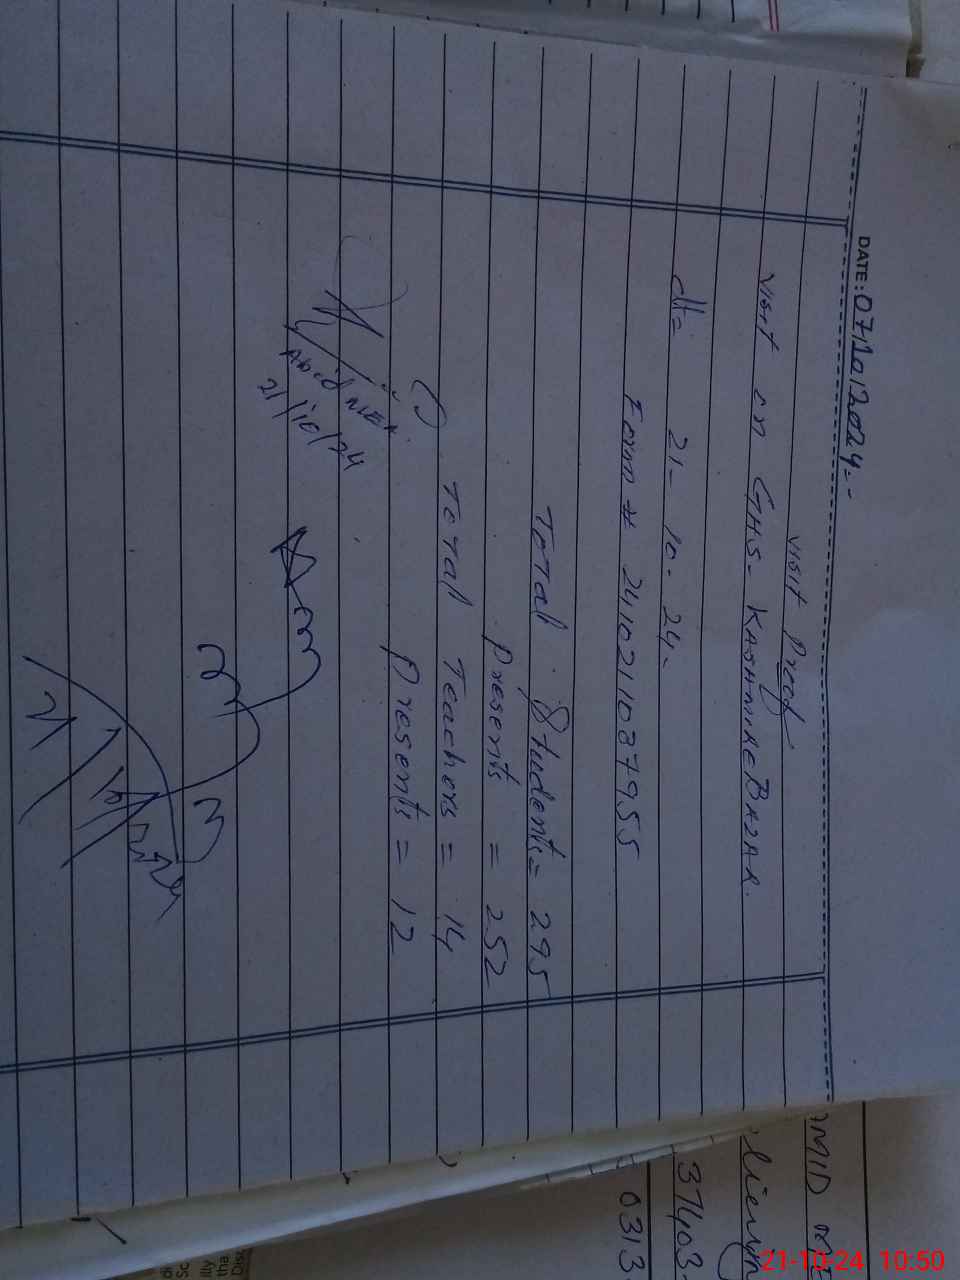 DATE: 07/10/2024.-
Visit Proof
Visit on GHS- KASHMIRE BAZAR.
dt= 21- 10- 24-
Form # 2410211087955
Total Students = 295
Presents = 252
Total Teachers = 14
Presents = 12
21/10/24
37403-
0313-
21-10-24 10:50